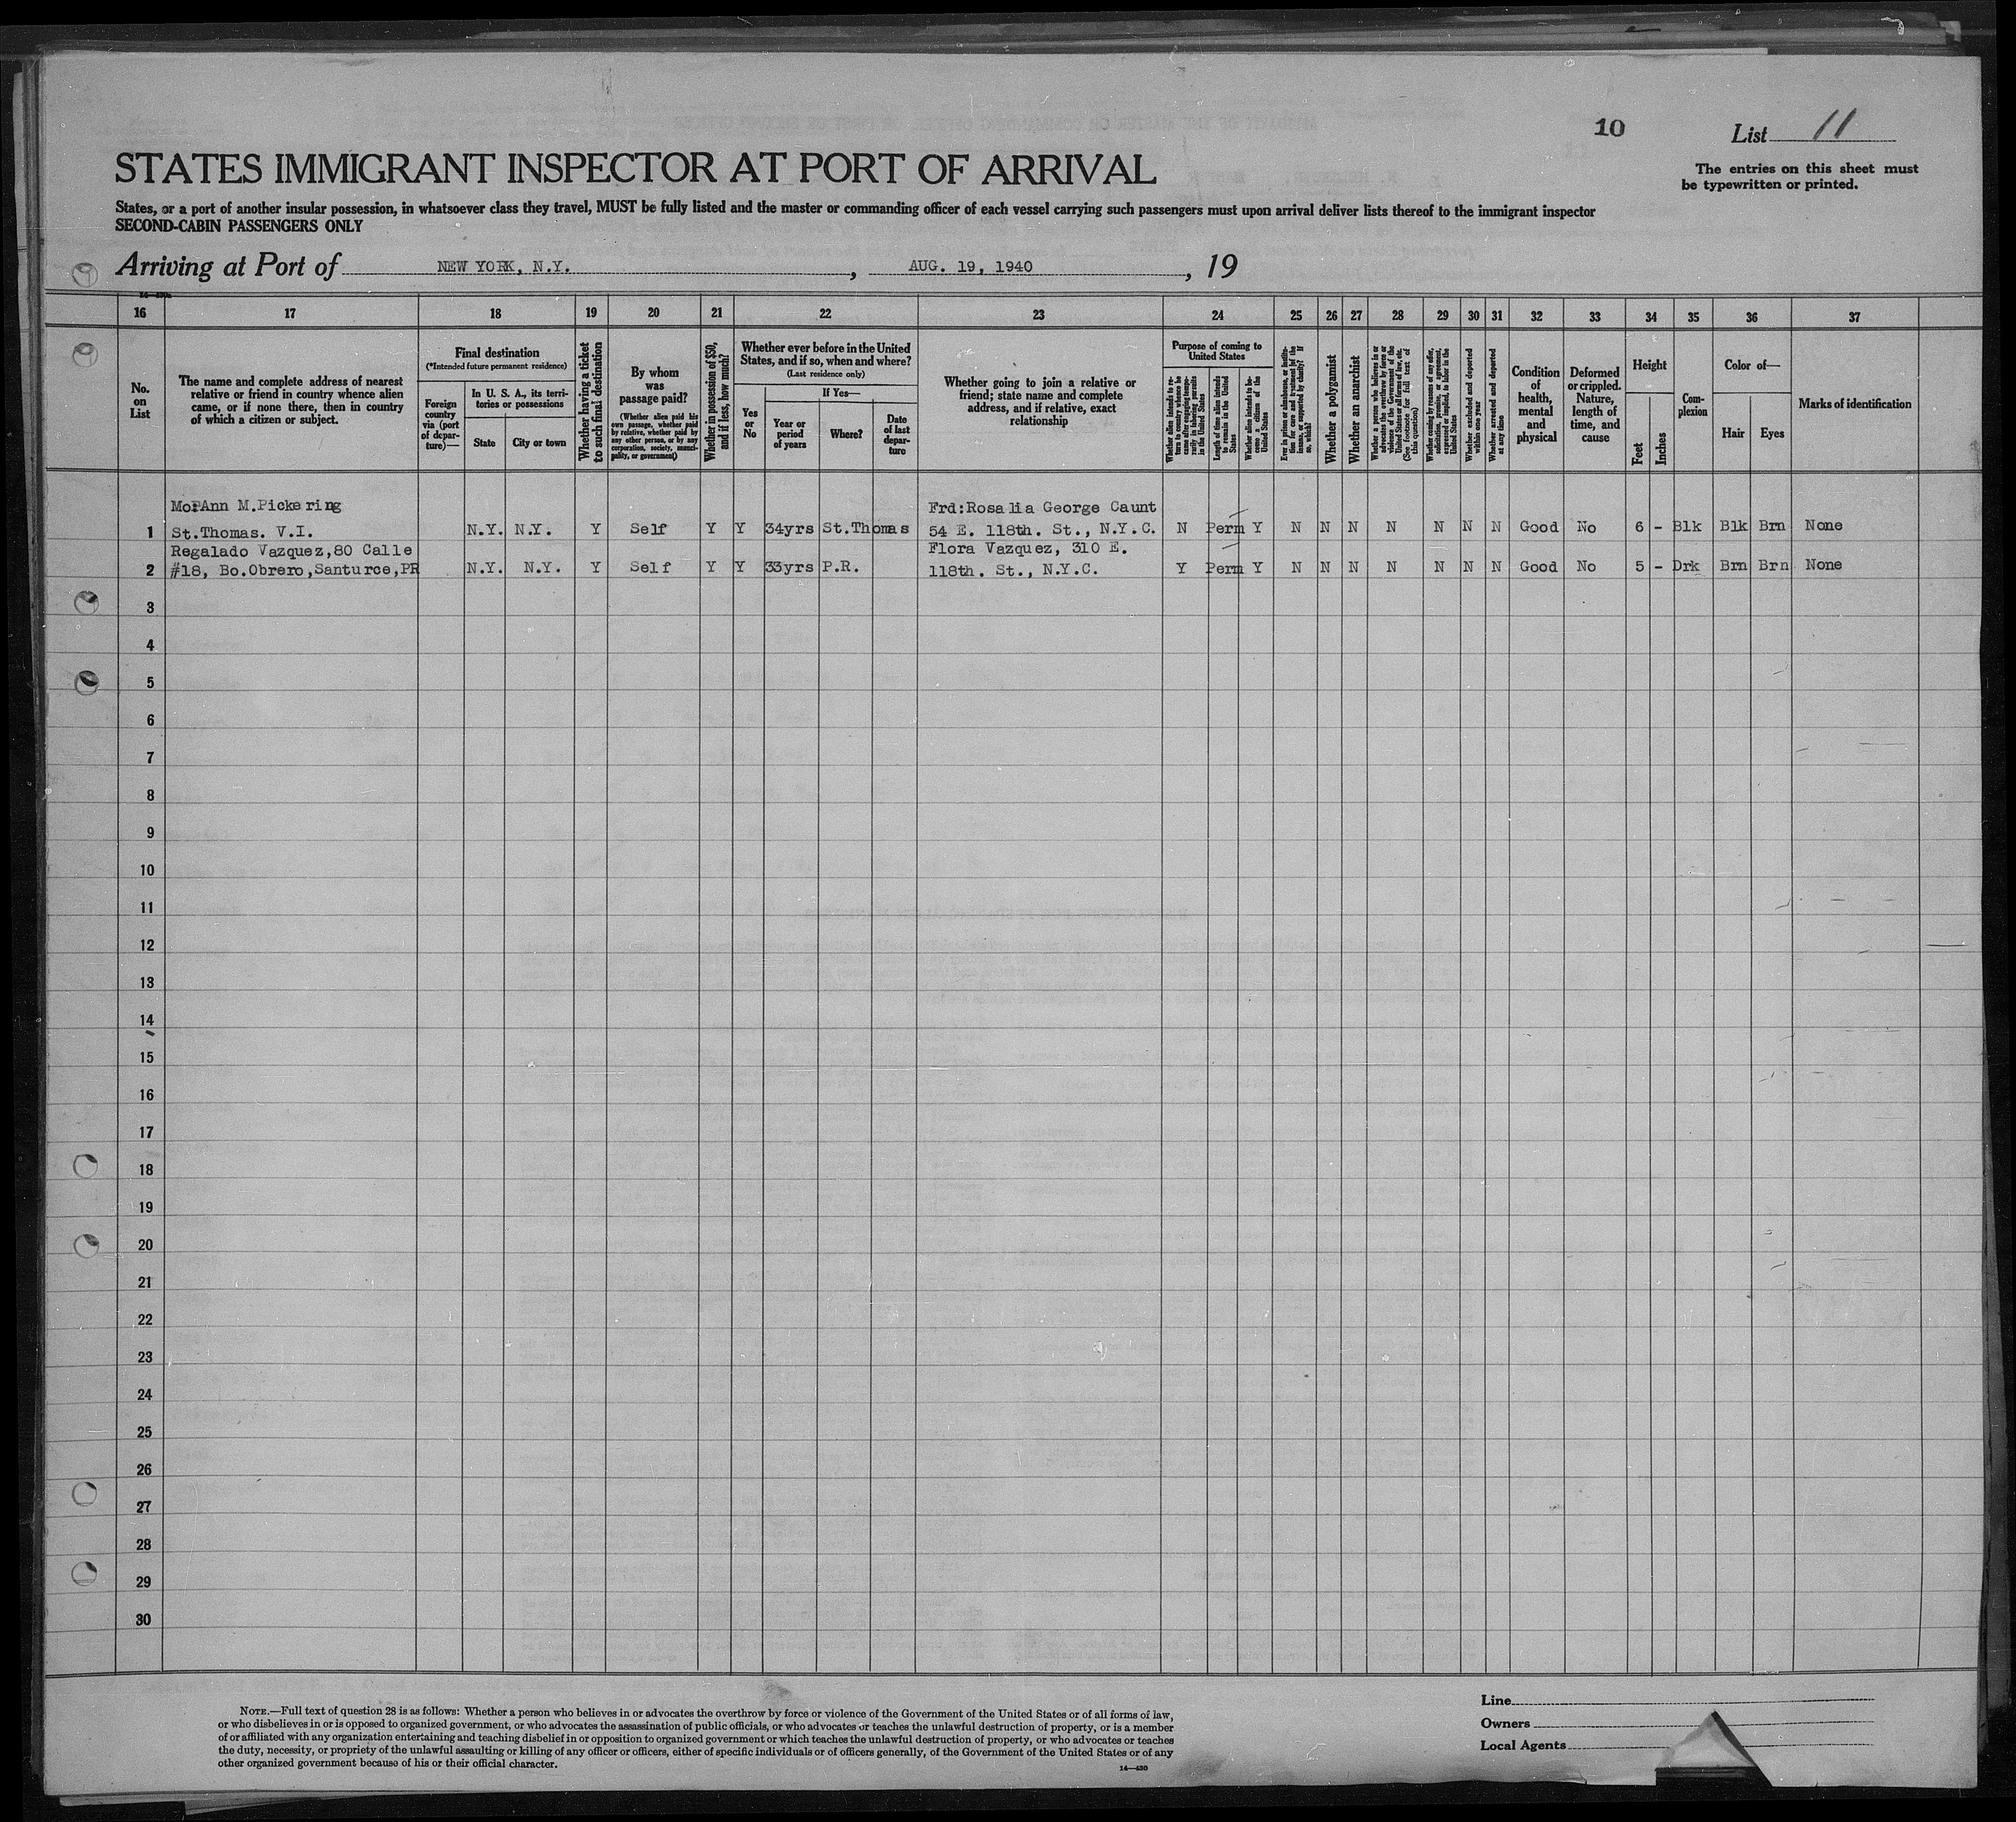 10
List 11
STATES IMMIGRANT INSPECTOR AT PORT OF ARRIVAL
The entries on this sheet must
be typewritten or printed.
States, or a port of another insular possession, in whatsoever class they travel, MUST be fully listed and the master or commanding officer of each vessel carrying such passengers must upon arrival deliver lists thereof to the immigrant inspector
SECOND-CABIN PASSENGERS ONLY
Arriving at Port of NEW YORK, N.Y. , AUG. 19, 1940 , 19
16 17 18 19 20 21 22 23 24 25 26 27 28 29 30 31 32 33 34 35 36 37
No.
on
List
The name and complete address of nearest
relative or friend in country whence alien
came, or if none there, then in country
of which a citizen or subject.
Final destination
(*Intended future permanent residence)
Foreign
country
via (port
of depar-
ture)—
In U. S. A., its terri-
tories or possessions
State
City or town
Whether having a ticket
to such final destination
By whom
was
passage paid?
(Whether alien paid his
own passage, whether paid
by relative, whether paid by
any other person, or by any
corporation, society, munici-
pality, or government)
Whether in possession of $50,
and if less, how much?
Whether ever before in the United
States, and if so, when and where?
(Last residence only)
Yes
or
No
If Yes—
Year or
period
of years
Where?
Date
of last
depar-
ture
Whether going to join a relative or
friend; state name and complete
address, and if relative, exact
relationship
Purpose of coming to
United States
Whether alien intends to re-
turn to country whence he
came after engaging tempo-
rarily in laboring pursuits
in the United States
Length of time alien intends
to remain in the United
States
Whether alien intends to be-
come a citizen of the
United States
Ever in prison or almshouse, or institu-
tion for care and treatment of the
insane, or supported by charity? If
so, which?
Whether a polygamist
Whether an anarchist
Whether a person who believes in or
advocates the overthrow by force or
violence of the Government of the
United States or all forms of law, etc.
(See footnote for full text of
this question)
Whether coming by reason of any offer,
solicitation, promise, or agreement,
expressed or implied, to labor in the
United States
Whether excluded and deported
within one year
Whether arrested and deported
at any time
Condition
of
health,
mental
and
physical
Deformed
or crippled.
Nature,
length of
time, and
cause
Height
Feet
Inches
Com-
plexion
Color of—
Hair
Eyes
Marks of identification
Ann M.Pickering Frd:Rosalia George Caunt
1 St.Thomas. V.I. N.Y. N.Y. Y Self Y Y 34yrs St.Thomas 54 E. 118th. St., N.Y.C. N Perm Y N N N N N N N Good No 6 - Blk Blk Brn None
Regalado Vazquez,80 Calle Flora Vazquez, 310 E.
2 #18, Bo.Obrero,Santurce,PR N.Y. N.Y. Y Self Y Y 33yrs P.R. 118th. St., N.Y.C. Y Perm Y N N N N N N N Good No 5 - Drk Brn Brn None
3
4
5
6
7
8
9
10
11
12
13
14
15
16
17
18
19
20
21
22
23
24
25
26
27
28
29
30
NOTE.—Full text of question 28 is as follows: Whether a person who believes in or advocates the overthrow by force or violence of the Government of the United States or of all forms of law,
or who disbelieves in or is opposed to organized government, or who advocates the assassination of public officials, or who advocates or teaches the unlawful destruction of property, or is a member
of or affiliated with any organization entertaining and teaching disbelief in or opposition to organized government or which teaches the unlawful destruction of property, or who advocates or teaches
the duty, necessity, or propriety of the unlawful assaulting or killing of any officer or officers, either of specific individuals or of officers generally, of the Government of the United States or of any
other organized government because of his or their official character.
14—430
Line
Owners
Local Agents